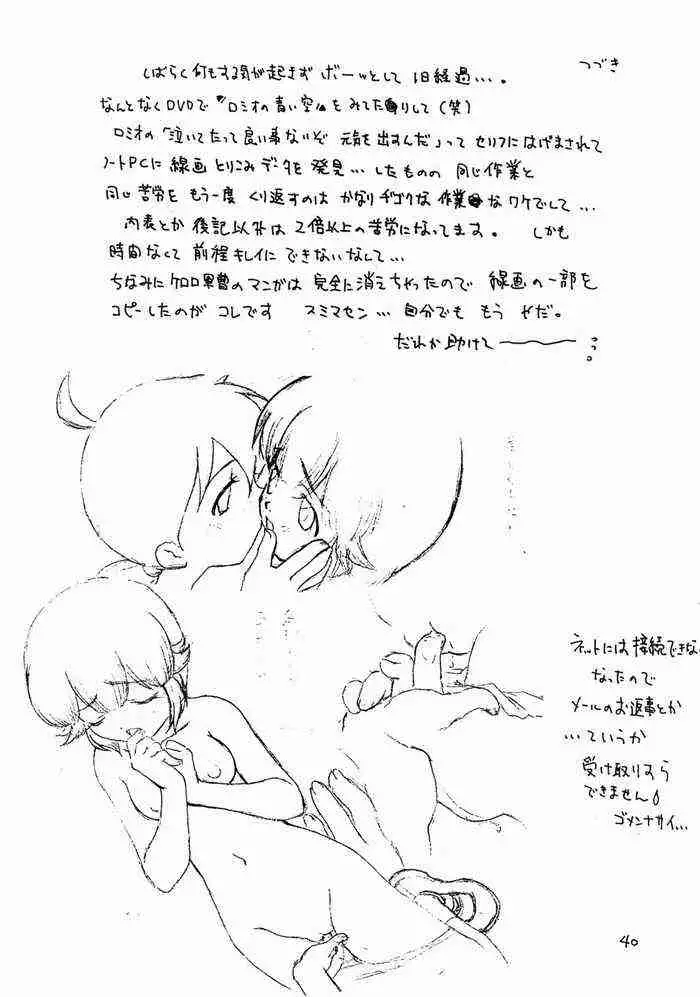 つづき
しばらく何もする気が起きず ボーッとして 1日経過…。
なんとなくDVDで『ロミオの青い空』をみてたりして(笑)
ロミオの「泣いてたって良い事ないぞ 元気を出すんだ」って セリフにはげまされて
ノートPCに 線画とりこみデータを 発見…したものの 同じ作業と
同じ苦労を もう一度 くり返すのは かなりヂゴクな 作業なワケでして…
内表とか 後記以外は 2倍以上の苦労になってます。 しかも
時間なくて 前程キレイに できないなんて…
ちなみにケロロ軍曹のマンガは 完全に消えちゃったので 線画の一部を
コピーしたのが コレです スミマセン… 自分でも もう ヤだ。
だれか助けて
ネットには接続できな
なったので
メールのお返事とか
…ていうか
受け取りすら
できません
ゴメンナサイ…
40